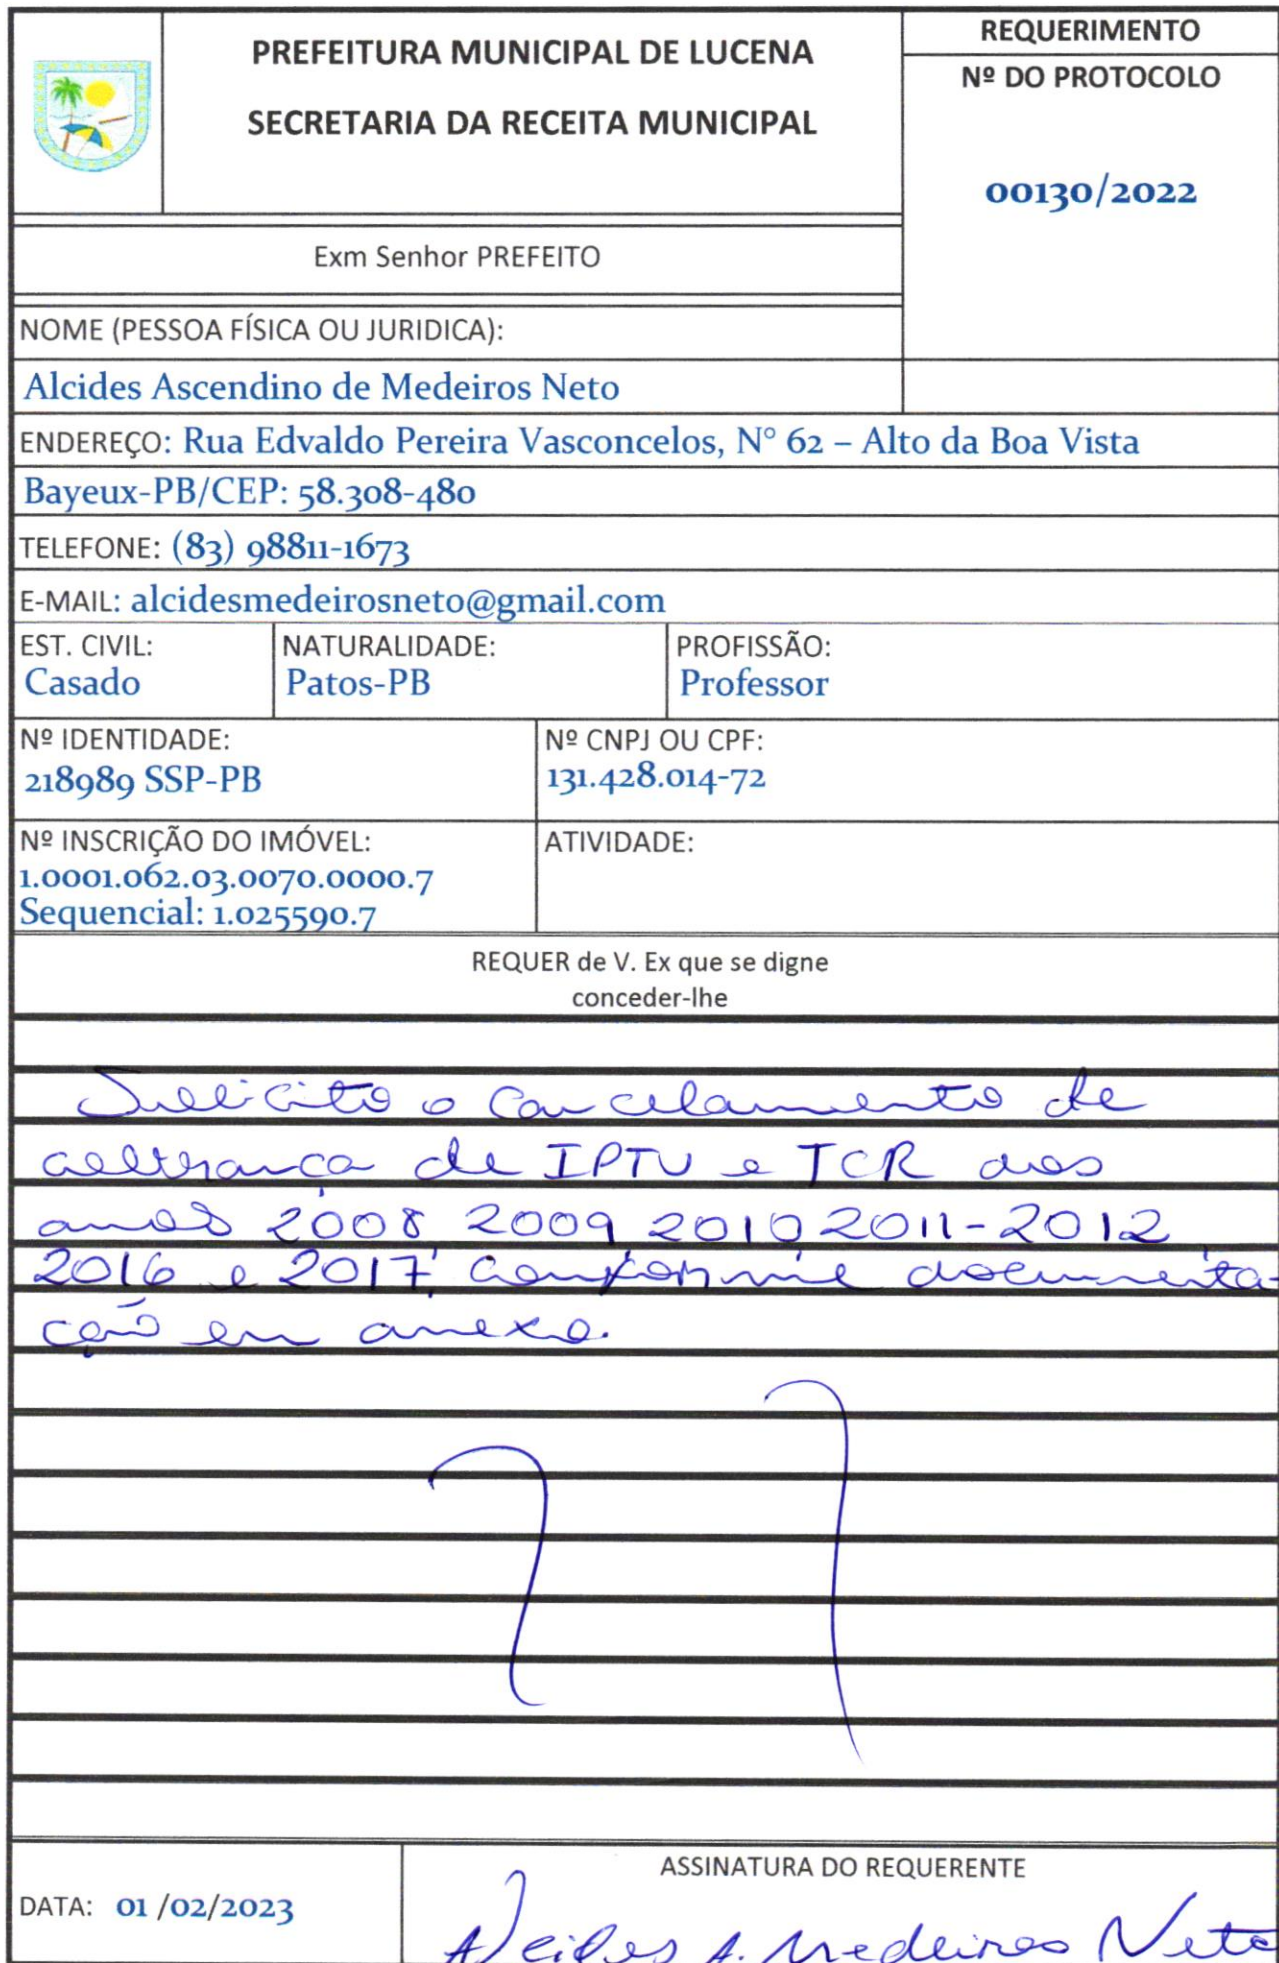 PREFEITURA MUNICIPAL DE LUCENA
SECRETARIA DA RECEITA MUNICIPAL
REQUERIMENTO
Nº DO PROTOCOLO
00130/2022
Exm Senhor PREFEITO
NOME (PESSOA FÍSICA OU JURIDICA):
Alcides Ascendino de Medeiros Neto
ENDEREÇO: Rua Edvaldo Pereira Vasconcelos, N° 62 – Alto da Boa Vista
Bayeux-PB/CEP: 58.308-480
TELEFONE: (83) 98811-1673
E-MAIL: alcidesmedeirosneto@gmail.com
EST. CIVIL:
Casado
NATURALIDADE:
Patos-PB
PROFISSÃO:
Professor
Nº IDENTIDADE:
218989 SSP-PB
Nº CNPJ OU CPF:
131.428.014-72
Nº INSCRIÇÃO DO IMÓVEL:
1.0001.062.03.0070.0000.7
Sequencial: 1.025590.7
ATIVIDADE:
REQUER de V. Ex que se digne
conceder-lhe
Sollicito o cancelamento de
cobrança de IPTU e TCR dos
anos 2008, 2009, 2010, 2011-2012,
2016 e 2017, conforme documenta-
ção em anexo.
DATA: 01 /02/2023
ASSINATURA DO REQUERENTE
Alcides A. Medeiros Neto